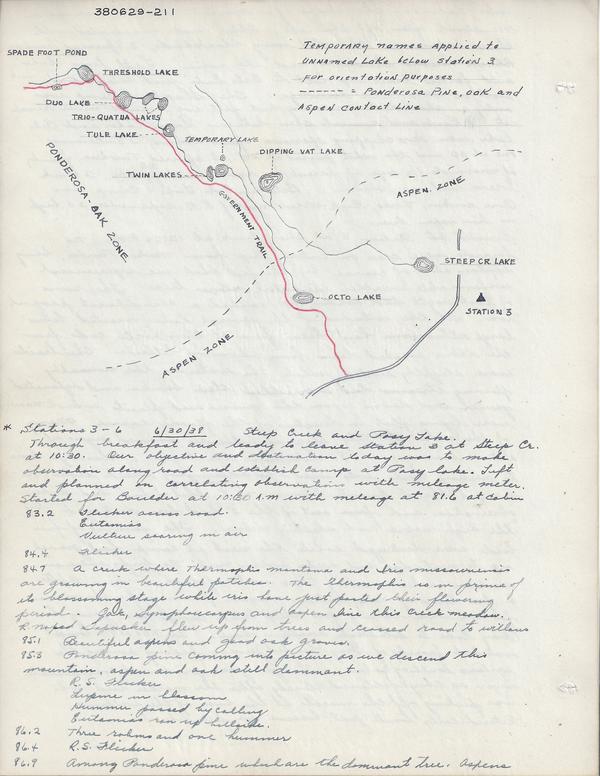 380629-211
SPADE FOOT POND
THRESHOLD LAKE
DUO LAKE
TRIO-QUATUA LAKES
TULE LAKE
TEMPORARY LAKE
TWIN LAKES
DIPPING VAT LAKE
PONDEROSA-OAK ZONE
GOVERNMENT TRAIL
ASPEN ZONE
STEEP CR. LAKE
OCTO LAKE
STATION 3
ASPEN ZONE
TEMPORARY names applied to
UNNAMED LAKE below STATION 3
FOR ORIENTATION PURPOSES
------ = PONDEROSA PINE, OAK AND
ASPEN CONTACT LINE
* Stations 3-6 6/30/38 Steep Creek and Posy Lake.
Through breakfast and ready to leave Station 3 at Steep Cr.
at 10:30. Our objective and destination today was to make
observation along road and establish camp at Posy Lake. Left
and planned on correlating observations with mileage meter.
Started for Boulder at 10:30 A.M with mileage at 81.6 at cabin
83.2 Flicker across road.
Eutamias
Vulture soaring in air
84.4 Flicker
84.7 A creek where Thermopsis montana and Iris missouriensis
are growing in beautiful patches. The Thermopsis is in prime of
its blossoming stage while iris have just passed their flowering
period. Oak, Symphoricarpus and aspen line this Creek meadow.
R. naped sapsucker flew up from trees and crossed road to willows
85.1 Beautiful aspens and good oak groves.
85.3 Ponderosa pine coming into picture as we descend this
mountain, aspen and oak still dominant.
R.S. Flicker
Lupine in blossom
Hummer passed by calling
Eutamias ran up hillside.
86.2 Three robins and one hummer
86.4 R.S. Flicker
86.9 Among Ponderosa pine which are the dominant tree. Aspens